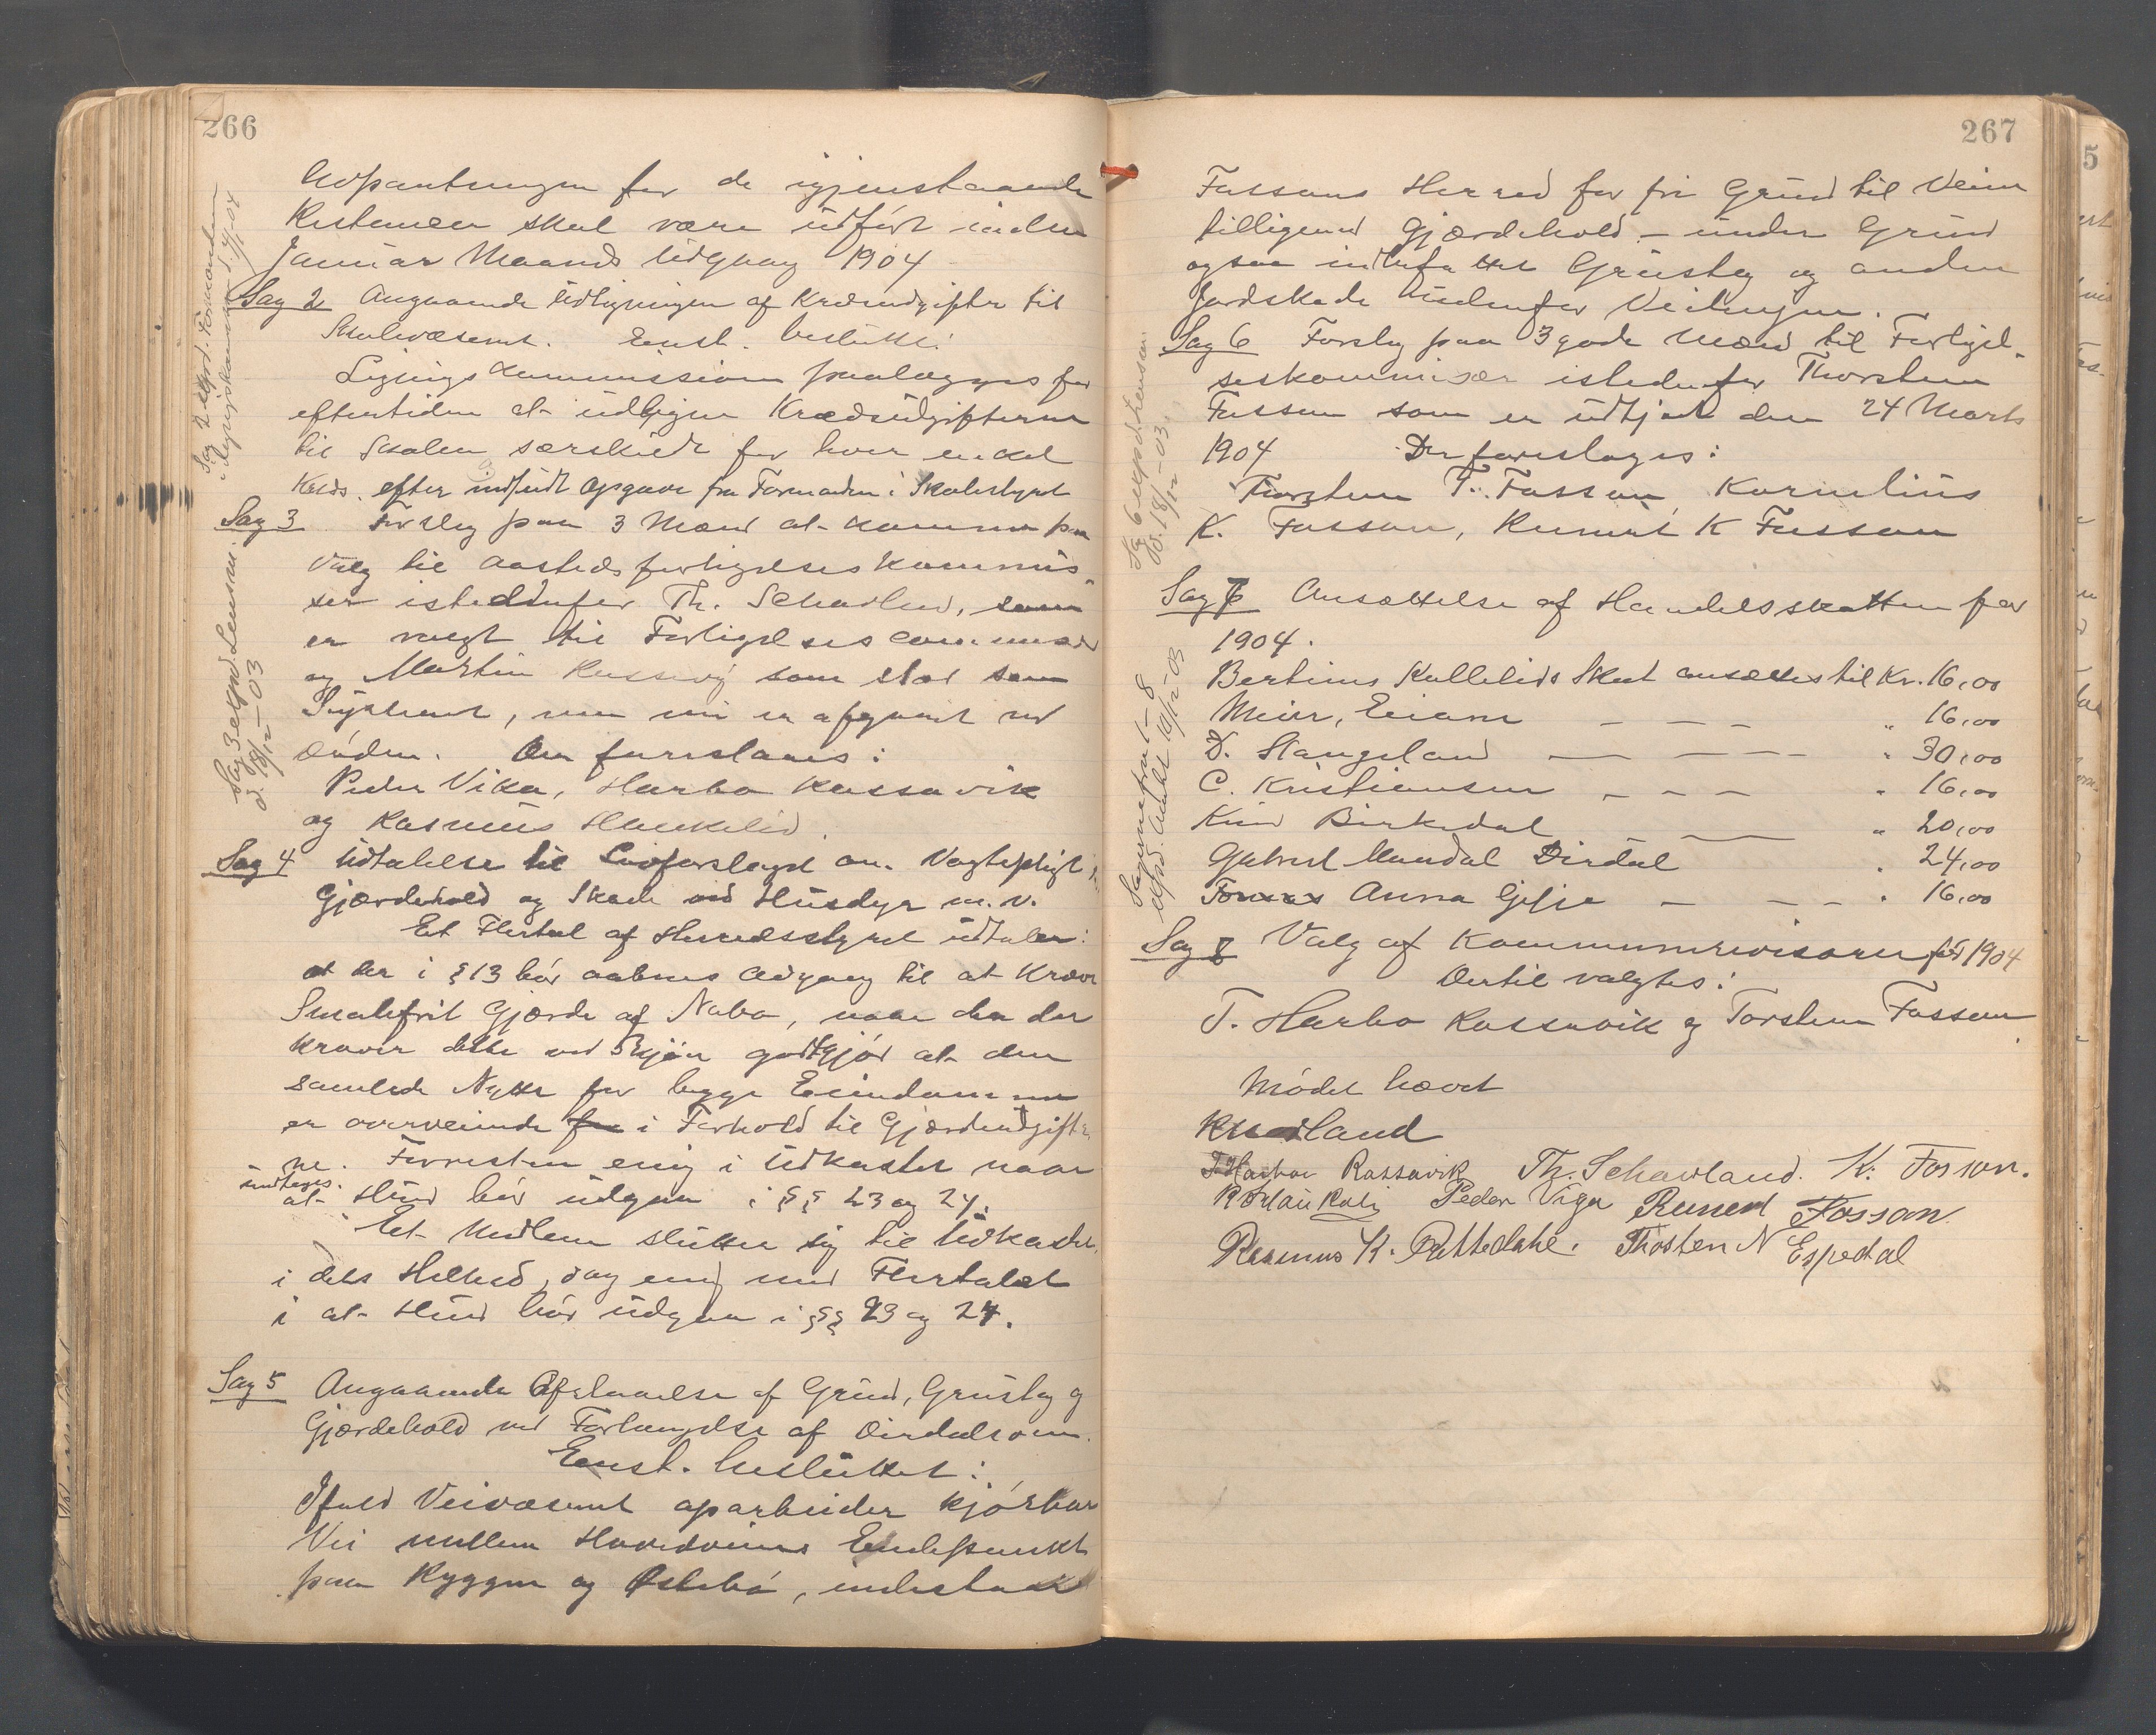 266
Udpantningen for de igjenstaaende
Restancer skal være udført inden
Januar Maaneds Udgang 1904
Sag 2 Angaaende Udligningen af Kredsudgifter til
Skolevæsenet. Enst. besluttet:
Ligningskommissionen paalægges for
eftertiden at udligne Kredsudgifterne
til Skolen særskildt for hver enkel
Kreds. efter indsendt Opgave fra Formanden i Skolestyret
Sag 2 expd. Formanden
i Ligningskommissionen d. 4/1-04
Sag 3 Forslag paa 3 Mænd at komme paa
Valg til Aastedsforligelseskommis-
sær istedenfor Th. Schavland, som
er valgt til Forligelsescommissær
og Martin Ravsvig som stod som
Suppleant, men nu er afgaaet ved
Døden. Der foreslaaes:
Peder Vika, Harbo Rassavik
og Rasmus Haukelid.
Sag 3 expd Lensm.
d. 18/12-03
Sag 4 Udtalelse til Lovforslaget om Vogtepligt,
Gjærdehold og Skade ved Husdyr m.v.
Et Flertal af Herredsstyret udtaler:
at der i § 13 bør aabnes Adgang til at kræve
Smalefrit Gjærde af Nabo, naar den der
kræver dette ved Skjøn godtgjør at den
samlede Nytte for begge Eiendomme
er overveiende i Forhold til Gjærdeudgifter
ne. Forresten enig i Udkastet naar
undtages.
at Hund bør udgaa i §§ 23 og 24.
Et Medlem slutter sig til Udkastet
i dets Helhed, dog enig med Flertallet
i at Hund bør udgaa i §§ 23 og 24.
Sag 5 Angaaende Afstaaelse af Grund, Grustag og
Gjærdehold ved Forlængelse af Dirdalsveien.
Enst. besluttet:
Ifald Veivæsenet oparbeider kjørbar
Vei mellem Hovedveiens Endepunkt
paa Ryggen og Østebø, indestaar
267
Fossans Herred for fri Grund til Veien
tilligemed Gjærdehold - under Grund
ogsaa indbefattet Grustag og anden
Jordskade udenfor Veilinjen.
Sag 6 Forslag paa 3 gode Mænd til Forligel-
seskommisær istedenfor Thorsten
Fossan som er udtjent den 24 Marts
1904 Der foreslaaes:
Thorsten T. Fossan, Kornelius
K. Fossan, Reinert K Fossan
Sag 6 expd. Lensm.
d. 18/12-03.
Sag 7 Ansættelse af Handelsskatten for
1904.
Bertinus Kallelids Skat ansættes til Kr. 16,00
Meier, Eiane — — — " 16,00
D. Stangeland — — — " 30,00
C. Kristiansen — — — " 16,00
Knud Birkedal — — " 20,00
Gabriel Maudal Dirdal " 24,00
Anna Gilje — — — " 16,00
Sag 8 Valg af Kommunerevisorer for 1904
Dertil valgtes:
T. Harbo Rassavik og Torsten Fossan.
Mødet hævet
Kne Land
T Harboe Rassavik Th. Schavland. K. Fossan.
Peder Viga Reinert Fossan
Rasmus K. Rettedahl. Thosten N Espedal